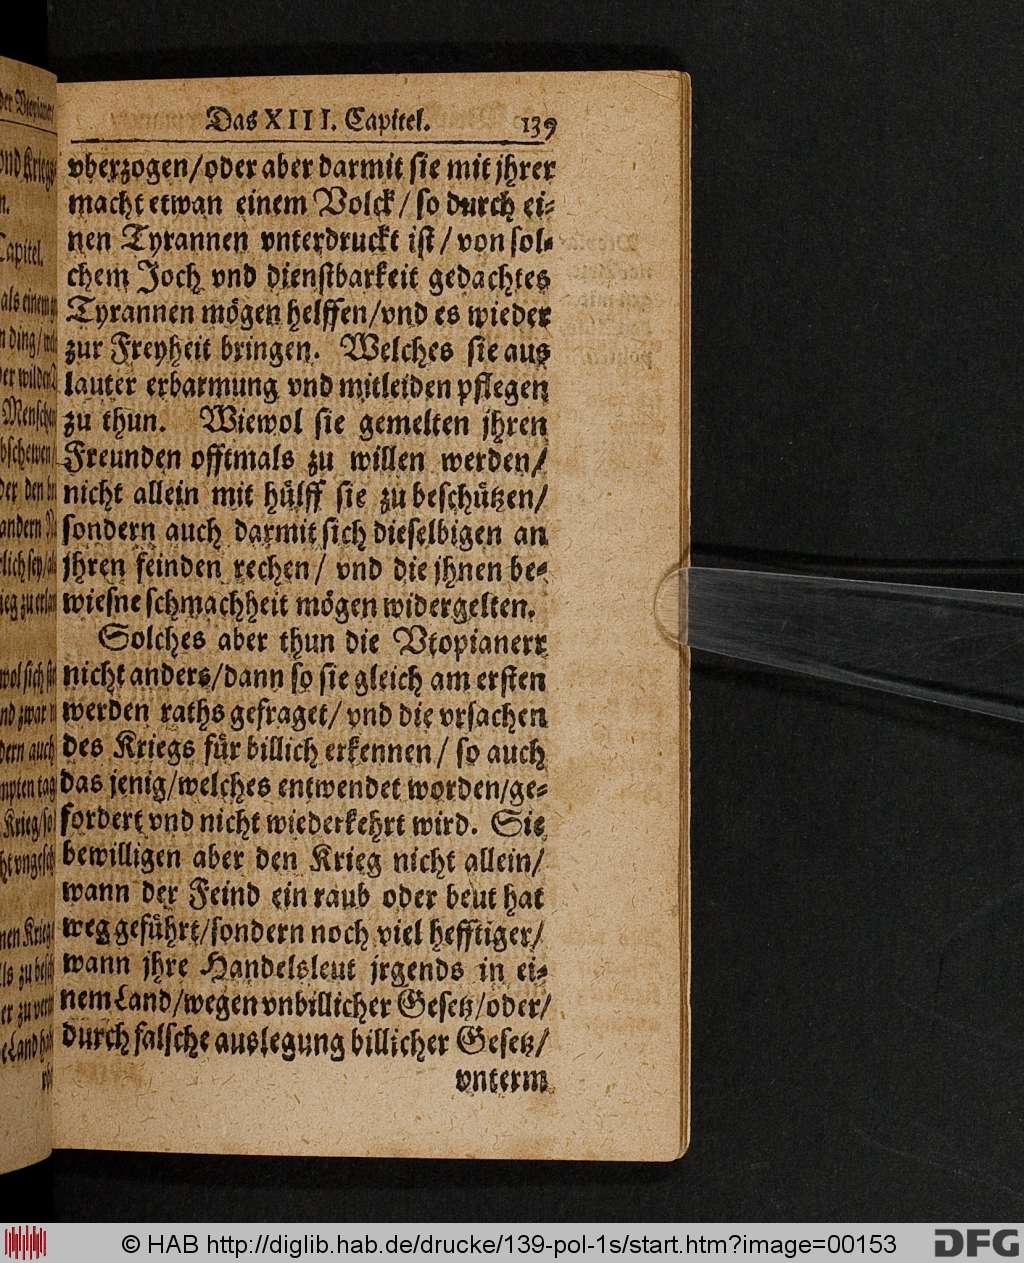 Das XIII. Capitel. 139
vberzogen/oder aber darmit sie mit jhrer
macht etwan einem Volck/ so durch ei-
nen Tyrannen vnterdruckt ist/ von sol-
chem Joch vnd dienstbarkeit gedachtes
Tyrannen mögen helffen/vnd es wieder
zur Freyheit bringen. Welches sie aus
lauter erbarmung vnd mitleiden pflegen
zu thun. Wiewol sie gemelten jhren
Freunden offtmals zu willen werden/
nicht allein mit hülff sie zu beschützen/
sondern auch darmit sich dieselbigen an
jhren feinden rechen/ vnd die jhnen be-
wiesne schmachheit mögen widergelten.
Solches aber thun die Vtopianerr
nicht anders/dann so sie gleich am ersten
werden raths gefraget/ vnd die vrsachen
des Kriegs für billich erkennen/ so auch
das jenig/welches entwendet worden/ge-
fordert vnd nicht wiederkehrt wird. Sie
bewilligen aber den Krieg nicht allein/
wann der Feind ein raub oder beut hat
weg geführt/sondern noch viel hefftiger/
wann jhre Handelsleut jrgends in ei-
nem Land/wegen vnbillicher Gesetz/oder/
durch falsche auslegung billicher Gesetz/
vnterm
© HAB http://diglib.hab.de/drucke/139-pol-1s/start.htm?image=00153 DFG